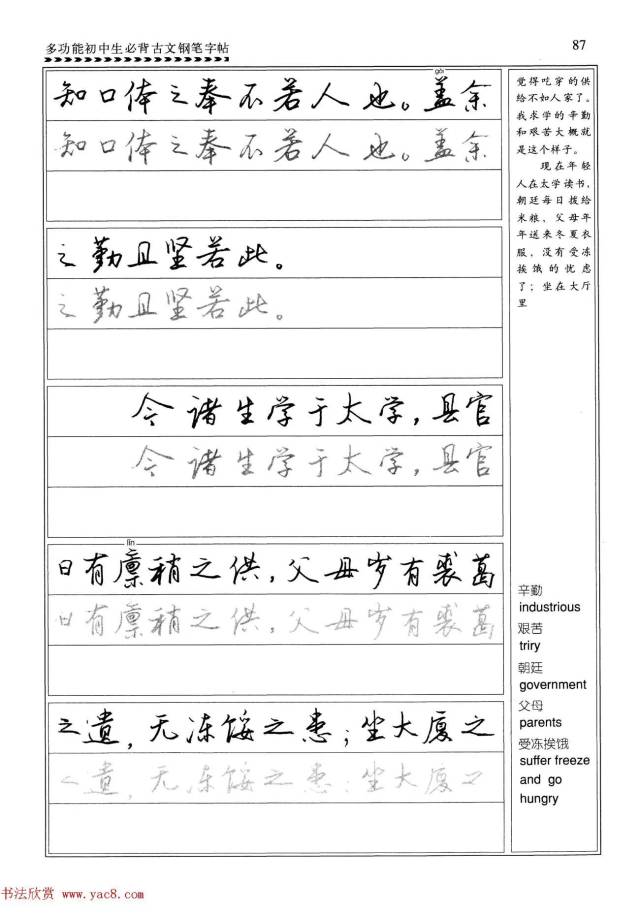 多功能初中生必背古文钢笔字帖
87
gài
知口体之奉不若人也。盖余
知口体之奉不若人也。盖余
之勤且坚若此。
之勤且坚若此。
今诸生学于太学，县官
今诸生学于太学，县官
lǐn
日有廪稍之供，父母岁有裘葛
日有廪稍之供，父母岁有裘葛
之遗，无冻馁之患；坐大厦之
之遗，无冻馁之患；坐大厦之
觉得吃穿的供
给不如人家了。
我求学的辛勤
和艰苦大概就
是这个样子。
现在年轻
人在太学读书，
朝廷每日拨给
米粮，父母年
年送来冬夏衣
服，没有受冻
挨饿的忧虑
了；坐在大厅
里
辛勤
industrious
艰苦
triry
朝廷
government
父母
parents
受冻挨饿
suffer freeze
and go
hungry
书法欣赏 www.yac8.com